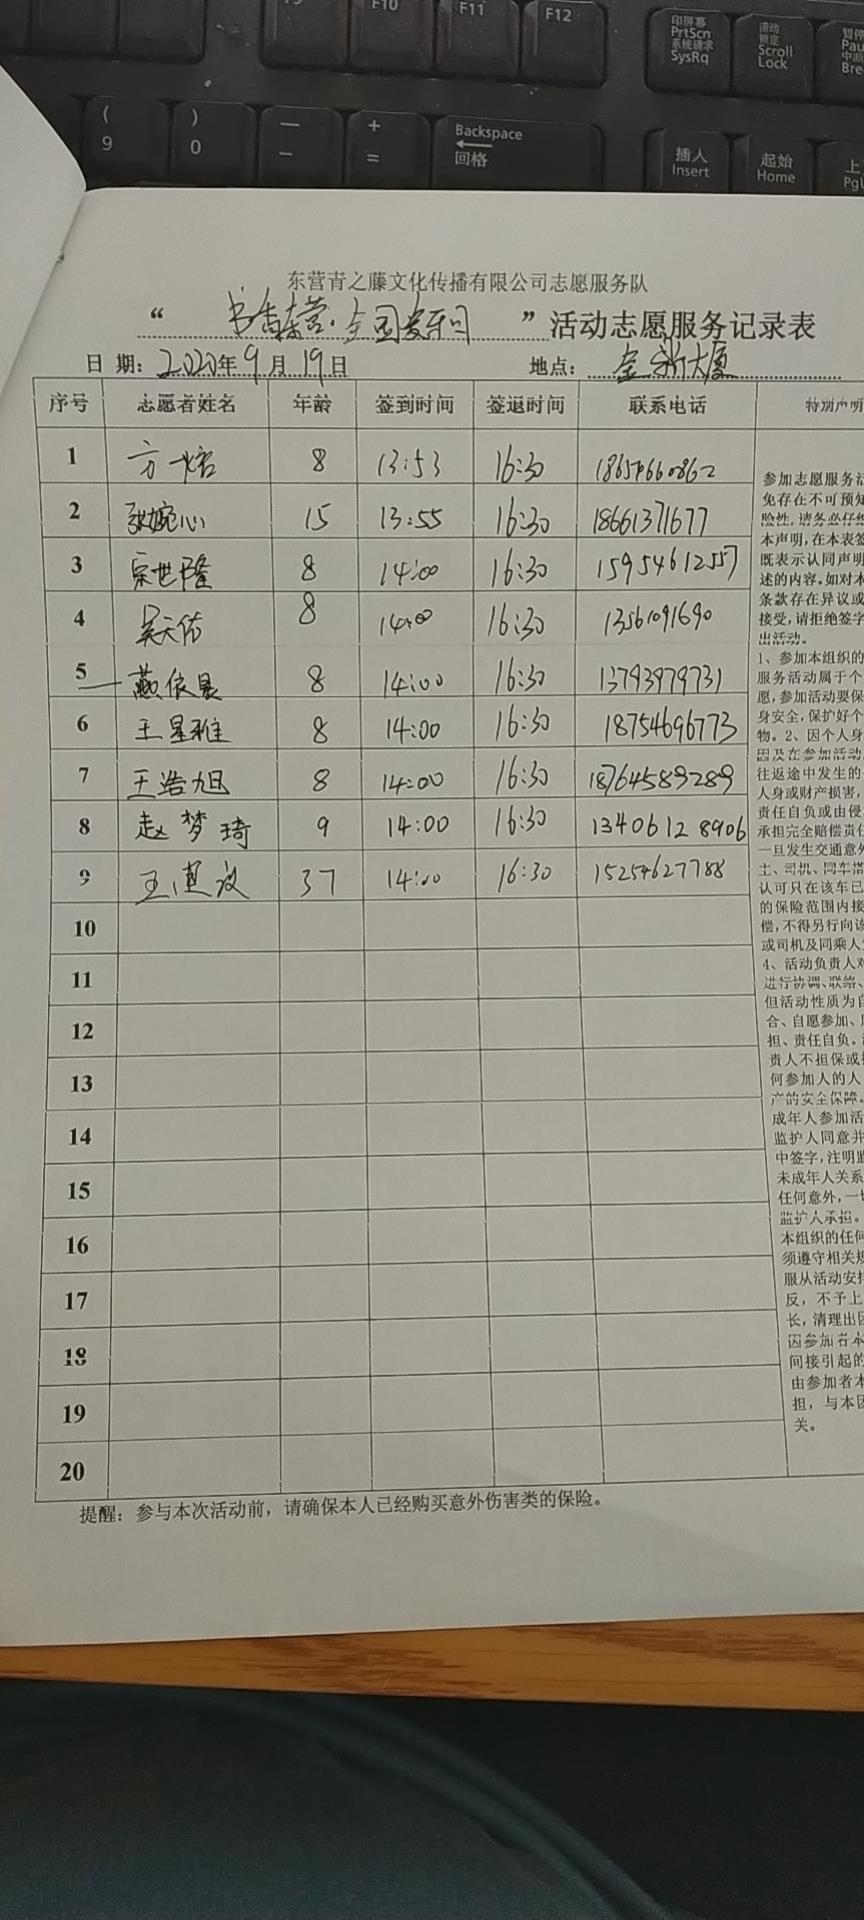 F10
F11
F12
印屏幕
PrtScn
系统请求
SysRq
滚动
锁定
Scroll
Lock
暂停
Pau
中断
Bre
( 9
) 0
— -
+ =
Backspace
回格
插入
Insert
起始
Home
上
PgU
东营青之藤文化传播有限公司志愿服务队
“书香东营·全国爱牙日”活动志愿服务记录表
日 期：2020年9月19日 地点：金浙大厦
序号 志愿者姓名 年龄 签到时间 签退时间 联系电话 特别声明
1 方 8 13:53 16:30
2 张婉心 15 13:55 16:30 18661371677
3 宗世隆 8 14:00 16:30 15954612557
4 吴天佑 8 14:00 16:30 13561091690
5 燕依晨 8 14:00 16:30 13793979731
6 王星雅 8 14:00 16:30 18754696773
7 王浩旭 8 14:00 16:30 18764589289
8 赵梦琦 9 14:00 16:30 13406128906
9 王 37 14:00 16:30 15254627788
10
11
12
13
14
15
16
17
18
19
20
参加志愿服务活
免存在不可预知
险性，请务必仔细
本声明，在本表签
既表示认同声明
述的内容。如对本
条款存在异议或
接受，请拒绝签字
出活动。
1、参加本组织的
服务活动属于个
愿，参加活动要保
身安全，保护好个
物。2、因个人身
因及在参加活动
往返途中发生的
人身或财产损害，
责任自负或由侵
承担完全赔偿责任
一旦发生交通意外
主、司机、同车搭
认可只在该车已
的保险范围内接
偿，不得另行向该
或司机及同乘人
4、活动负责人对
进行协调、联络、
但活动性质为自
合、自愿参加、
担、责任自负。
责人不担保或
何参加人的人
产的安全保障。
成年人参加活
监护人同意并
中签字，注明监
未成年人关系
任何意外，一切
监护人承担。
本组织的任何
须遵守相关规
服从活动安排
反，不予上
长，清理出团
因参加者本
间接引起的
由参加者本
担，与本团
关。
提醒：参与本次活动前，请确保本人已经购买意外伤害类的保险。